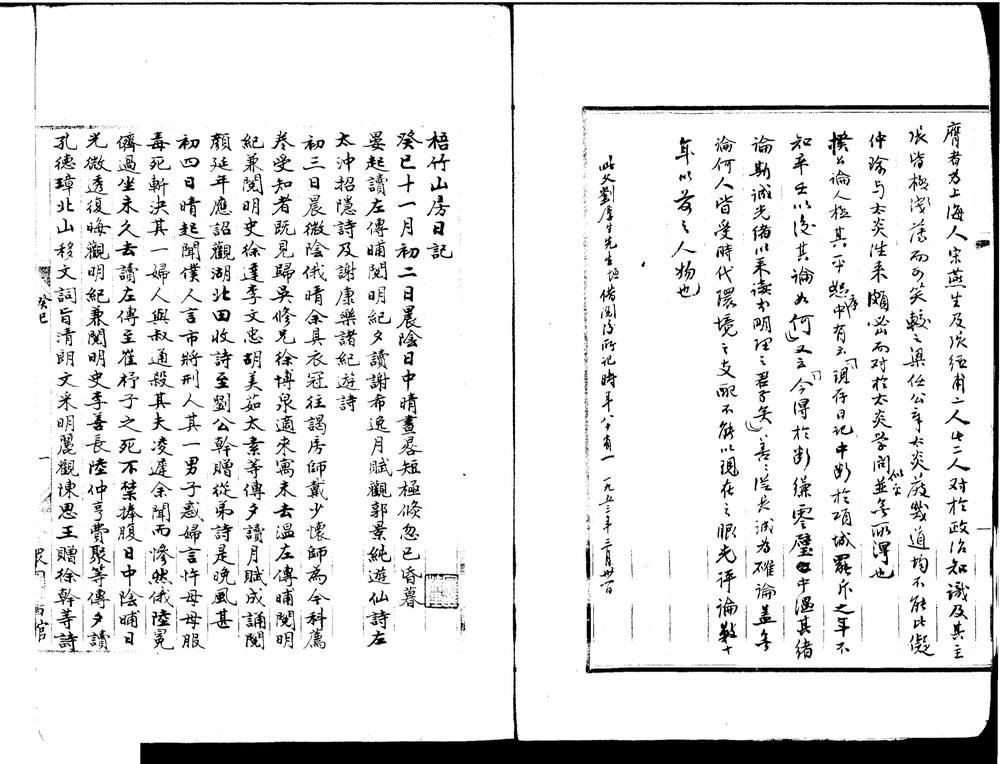 膺者为上海人宋燕生及張經甫二人此二人对於政治知識及其主
張皆极淺薄而可笑較之梁任公章太炎嚴幾道均不能比儗
仲瑜与太炎往来頗密而对於太炎学問並無所得也
似亦
揆公論人极其平恕序中有云「現存日记中断於項城罷斥之年不
知辛壬以後其論如何」又云「今得於断縑零璧中温其緒
論斯誠光緒以来读书明理之君子矣」善善從長诚为確論盖無
論何人皆受時代環境之支配不能以現在之眼光评論数十
年以前之人物也
此文劉厚生先生垣借閱後所记時年八十有一 一九五三年三月卅一日
梧竹山房日記
癸巳十一月初二日晨陰日中晴晝晷短極倏忽已昏暮
晏起讀左傳晡閱明紀夕讀謝希逸月賦觀郭景純遊仙詩左
太沖招隱詩及謝康樂諸紀遊詩
初三日晨微陰俄晴余具衣冠往謁房師戴少懷師為今科薦
卷受知者既見歸吳修兄徐博泉適來寓未去溫左傳晡閱明
紀兼閱明史徐達李文忠胡美茹太素等傳夕讀月賦成誦閱
顏延年應詔觀湖北田收詩至劉公幹贈從弟詩是晚風甚
初四日晴起聞僕人言市將刑人其一男子惑婦言忤母母服
毒死斬決其一婦人與叔通殺其夫凌遲余聞而慘然俄陸冕
儕過坐未久去讀左傳至崔杼子之死不禁捧腹日中陰晡日
光微透復晦觀明紀兼閱明史李善長陸仲亨費聚等傳夕讀
孔德璋北山移文詞旨清朗文采明麗觀陳思王贈徐幹等詩
癸巳
一